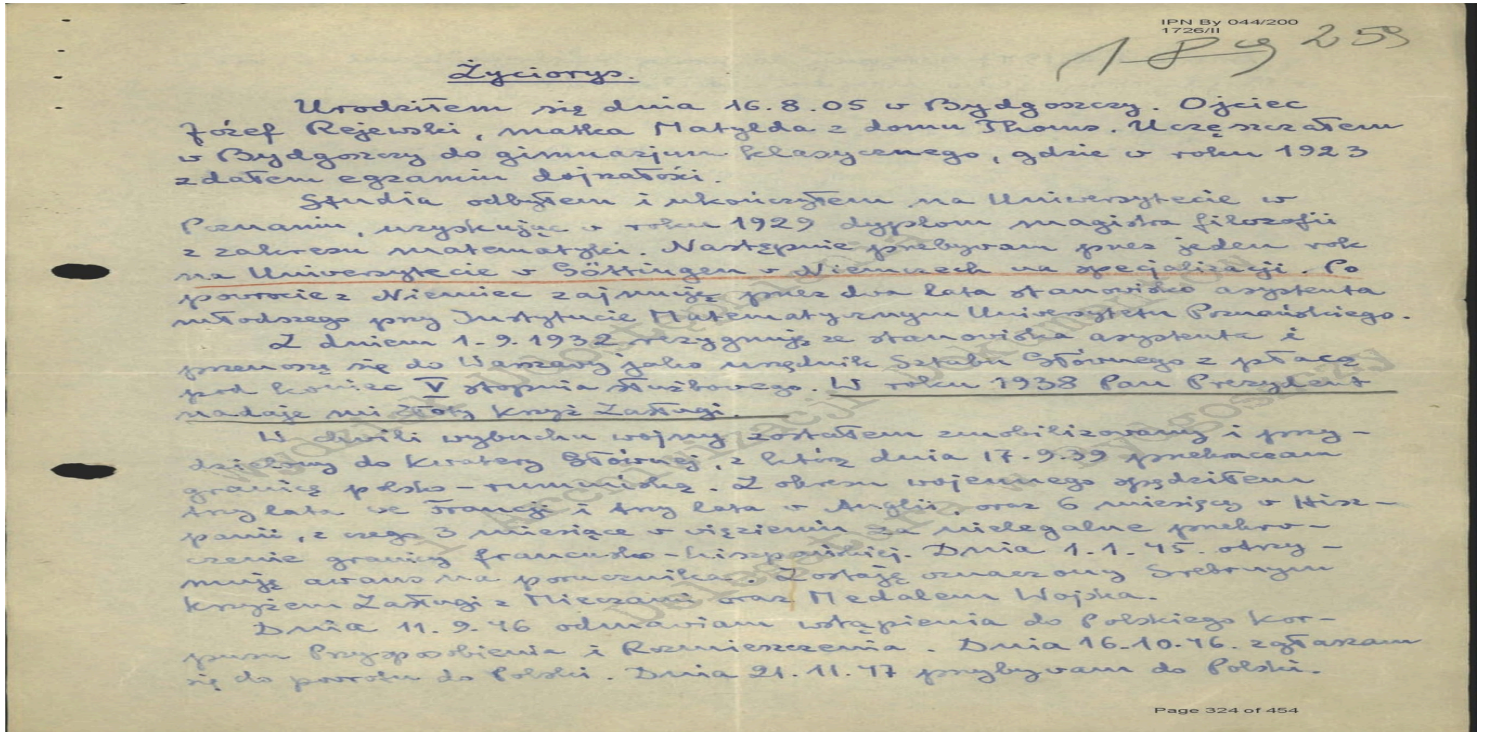 IPN By 044/200
1726/II
259
Życiorys.
Urodziłem się dnia 16.8.05 w Bydgoszczy. Ojciec
Józef Rejewski, matka Matylda z domu Thoms. Uczęszczałem
w Bydgoszczy do gimnazjum klasycznego, gdzie w roku 1923
zdałem egzamin dojrzałości.
Studia odbyłem i ukończyłem na Uniwersytecie w
Poznaniu, uzyskując w roku 1929 dyplom magistra filozofii
z zakresu matematyki. Następnie przebywam przez jeden rok
na Uniwersytecie w Göttingen w Niemczech na specjalizacji. Po
powrocie z Niemiec zajmuję przez dwa lata stanowisko asystenta
młodszego przy Instytucie Matematycznym Uniwersytetu Poznańskiego.
Z dniem 1.9.1932 rezygnuję ze stanowiska asystenta i
przenoszę się do Warszawy jako urzędnik Sztabu Głównego z płacą
pod koniec V stopnia służbowego. W roku 1938 Pan Prezydent
nadaje mi Złoty Krzyż Zasługi.
W chwili wybuchu wojny zostałem zmobilizowany i przy-
dzielony do Kwatery Głównej, z którą dnia 17.9.39 przekraczam
granicę polsko-rumuńską. Z okresu wojennego spędziłem
trzy lata we Francji i trzy lata w Anglii, oraz 6 miesięcy w Hisz-
panii, z czego 3 miesiące w więzieniu za nielegalne przekro-
czenie granicy francusko-hiszpańskiej. Dnia 1.1.45. otrzy-
muję awans na porucznika. Zostaję oznaczony Srebrnym
Krzyżem Zasługi z Mieczami oraz Medalem Wojska.
Dnia 11.9.46 odmawiam wstąpienia do Polskiego Kor-
pusu Przysposobienia i Rozmieszczenia. Dnia 16.10.46. zgłaszam
się do powrotu do Polski. Dnia 21.11.47 przybywam do Polski.
Page 324 of 454